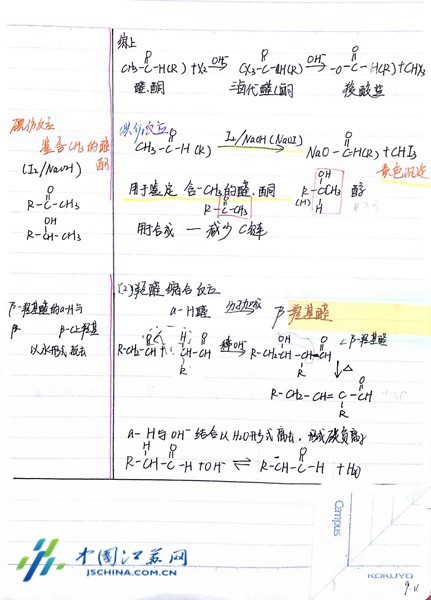 综上
CH3-C-H(R)+X2 OH⁻ CX3-C-H(R) OH⁻ -O-C-H(R)+CHX3
O O O
醛.酮 三卤代醛(酮 羧酸盐
碘仿反应
鉴含CH3的醛
酮
(I2/NaOH)
O
R-C-CH3
OH
R-CH-CH3
碘仿反应
CH3-C-H(R) I2/NaOH(NaOI) NaO-CH(R)+CHI3
黄色沉淀
用于鉴定 含-CH3的醛.酮
R-C-CH3
OH
R-C-CH3 醇
(H)
H
用于合成 — 减少C链
β-羟基醛的α-H与
β-C上羟基
以水形式脱去
(2)羟醛缩合反应
α-H醛 β-羟基醛
R-CH2-CH 稀OH⁻ R-CH2CH-CH-CH β-羟基醛
R
△
R-CH2-CH=C-CH
R
α-H与OH⁻结合以H2O形式离去，形成碳负离子
R-CH-C-H +OH⁻ ⇌ R-CH-C-H + H2O
Campus
KOKUYO
中国江苏网
JSCHINA.COM.CN